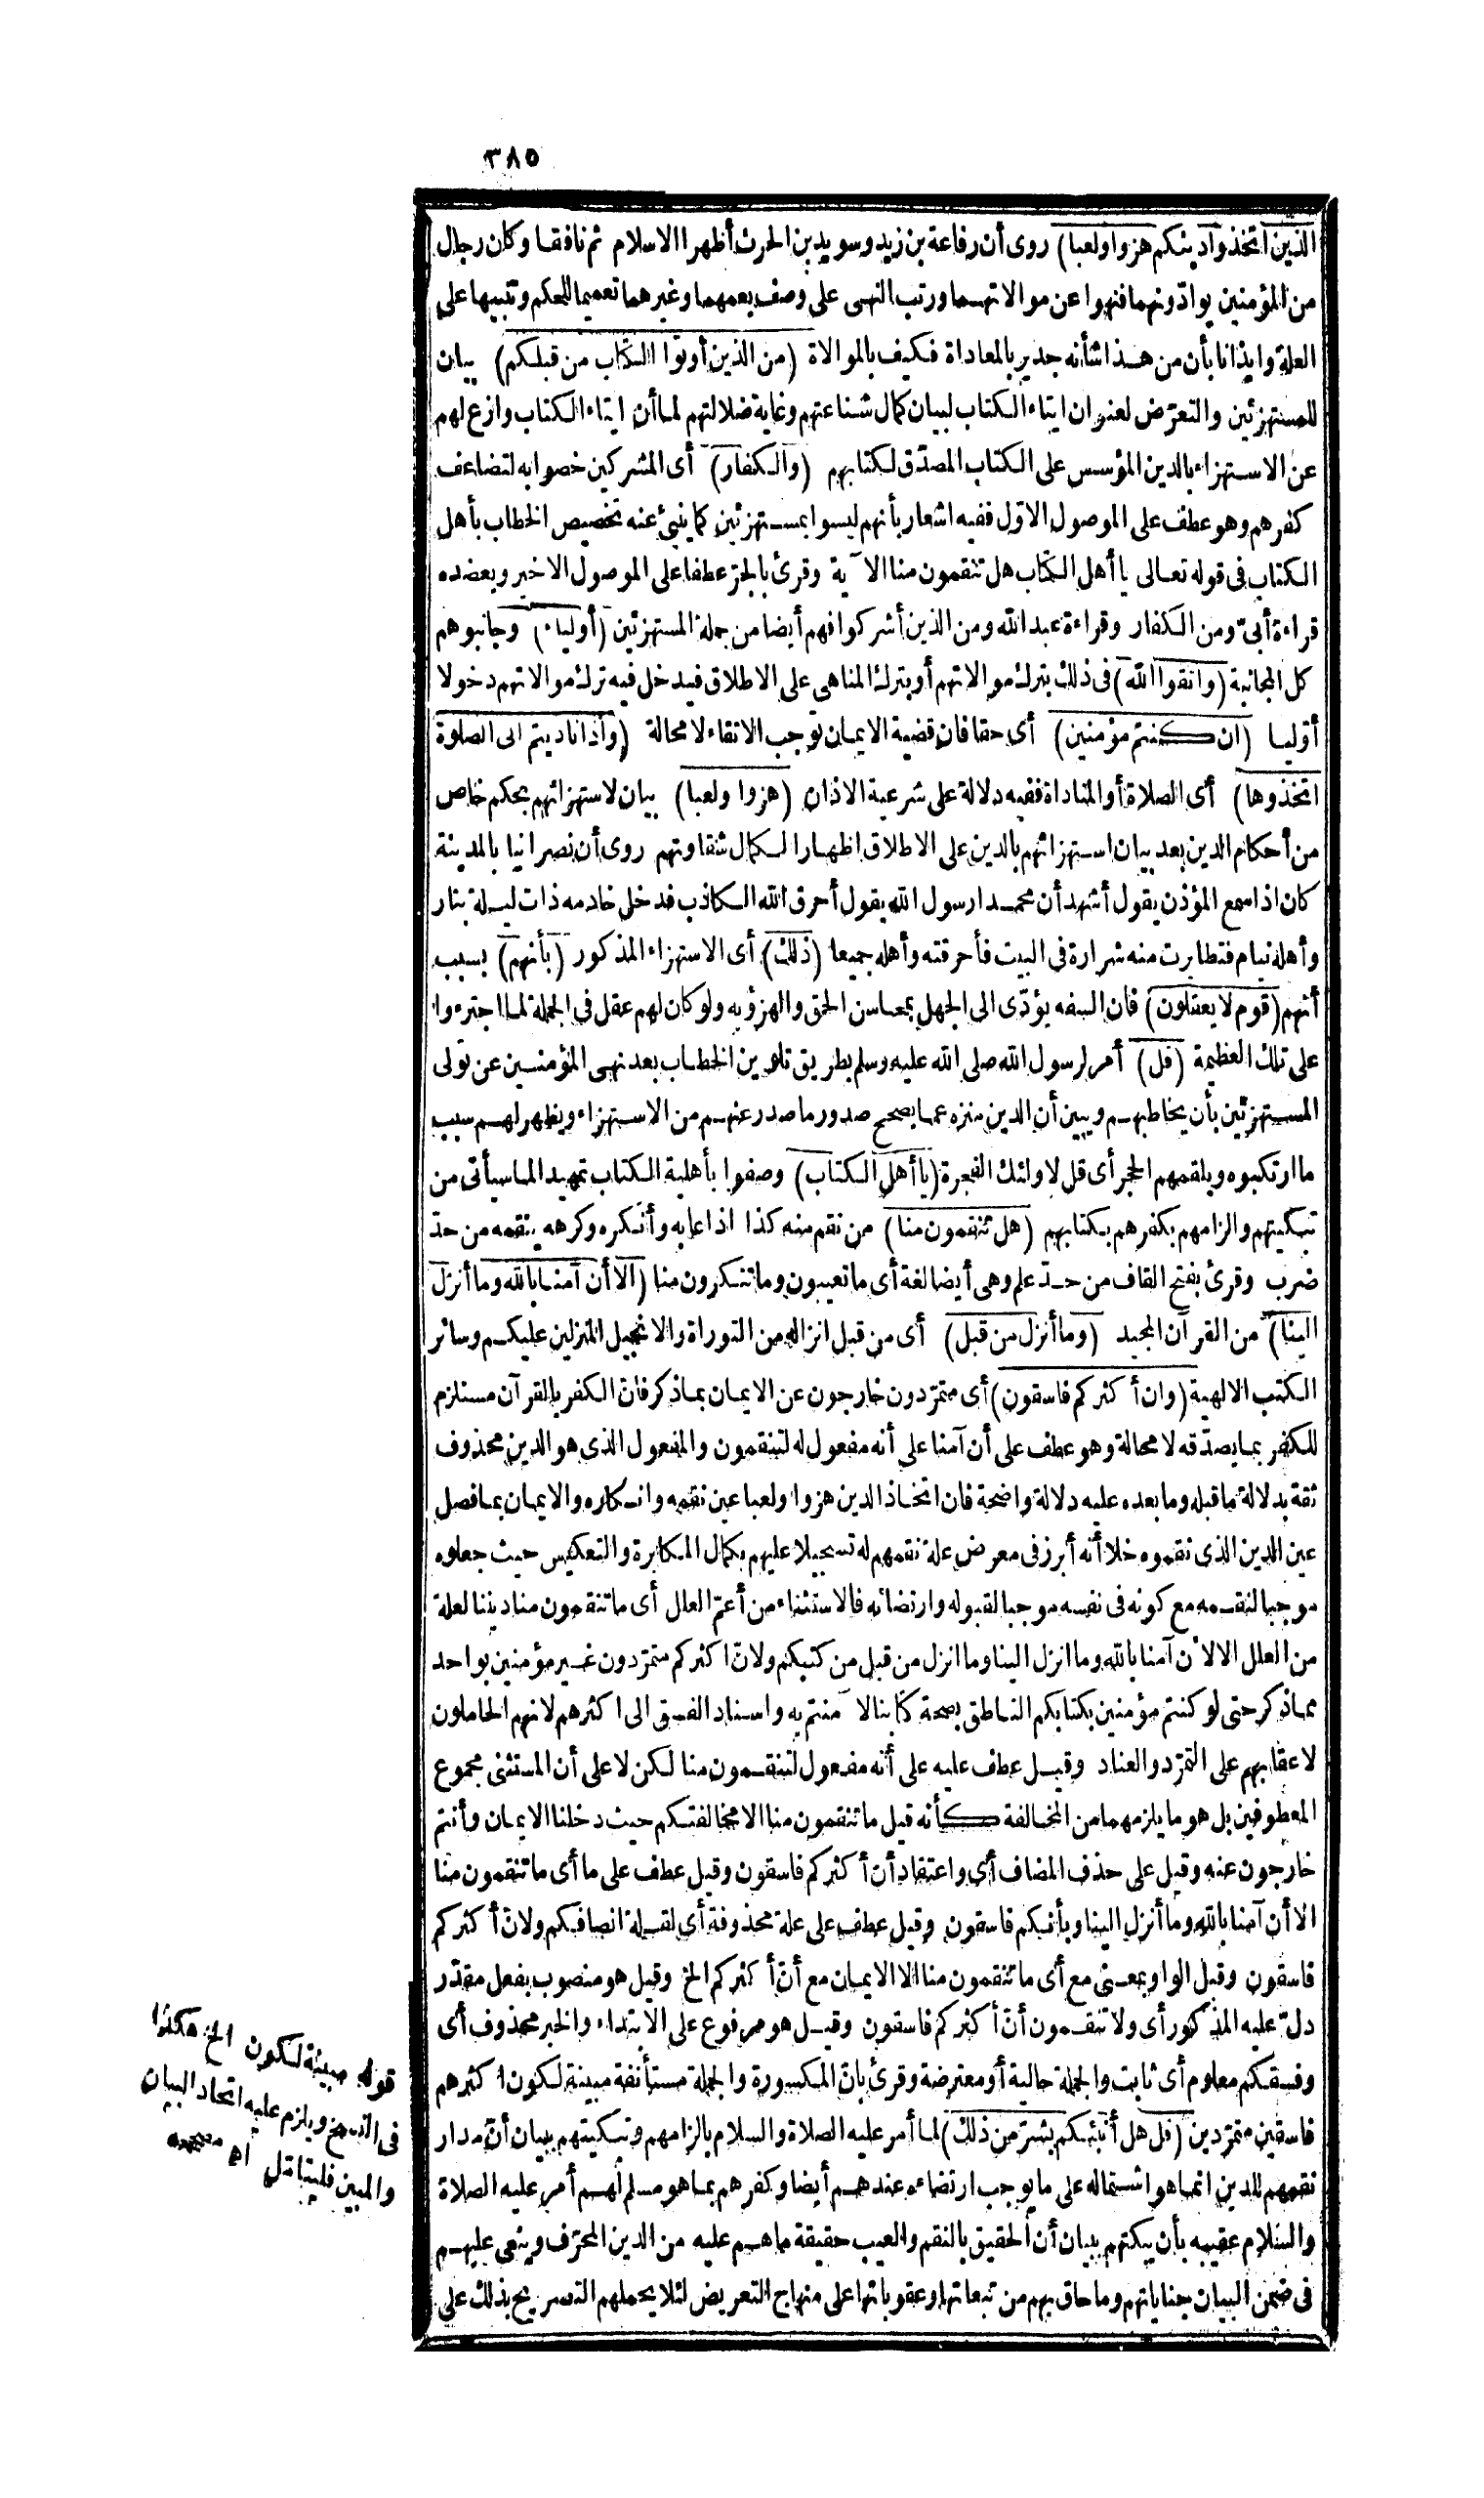 ٣٨٥
الذين اتخذوا دينكم هزوا ولعبا) روى أن رفاعة بن زيد وسويد بن الحرث أظهرا الاسلام ثم نافقا وكان رجال
من المؤمنين يوادّونهما فنهوا عن موالاتهما ورتب النهى على وصف يعمهما وغيرهما تعميما للحكم وتنبيها على
العلة وايذانا بأن من هذا شأنه جدير بالمعاداة فكيف بالموالاة (من الذين أوتوا الكتاب من قبلكم) بيان
للمستهزئين والتعرّض لعنوان ايتاء الكتاب لبيان كمال شناعتهم وغاية ضلالتهم لما أن ايتاء الكتاب وازع لهم
عن الاستهزاء بالدين المؤسس على الكتاب المصدّق لكتابهم (والكفار) أى المشركين خصوا به لتضاعف
كفرهم وهو عطف على الموصول الاوّل ففيه اشعار بأنهم ليسوا بمستهزئين كما ينبئ عنه تخصيص الخطاب بأهل
الكتاب فى قوله تعالى يا أهل الكتاب هل تنقمون منا الآية وقرئ بالجرّ عطفا على الموصول الاخير ويعضده
قراءة أبىّ ومن الكفار وقراءة عبد الله ومن الذين أشركوا فهم أيضا من جملة المستهزئين (أولياء) وجانبوهم
كل المجانبة (واتقوا الله) فى ذلك بترك موالاتهم أو بترك المناهى على الاطلاق فيدخل فيه ترك موالاتهم دخولا
أوّليا (ان كنتم مؤمنين) أى حقا فان قضية الايمان توجب الاتقاء لا محالة (واذا ناديتم الى الصلوة
اتخذوها) أى الصلاة أو المناداة ففيه دلالة على شرعية الاذان (هزوا ولعبا) بيان لاستهزائهم بحكم خاص
من أحكام الدين بعد بيان استهزائهم بالدين على الاطلاق اظهارا لكمال شقاوتهم روى أن نصرانيا بالمدينة
كان اذا سمع المؤذن يقول أشهد أن محمدا رسول الله يقول أحرق الله الكاذب فدخل خادمه ذات ليلة بنار
وأهله نيام فتطايرت منه شرارة فى البيت فأحرقته وأهله جميعا (ذلك) أى الاستهزاء المذكور (بأنهم) بسبب
أنهم (قوم لا يعقلون) فان السفه يؤدّى الى الجهل بمحاسن الحق والهزؤ به ولو كان لهم عقل فى الجملة لما اجترءوا
على تلك العظيمة (قل) أمر لرسول الله صلى الله عليه وسلم بطريق تلوين الخطاب بعد نهى المؤمنين عن تولى
المستهزئين بأن يخاطبهم ويبين أن الدين منزه عما يصحح صدور ما صدر عنهم من الاستهزاء ويظهر لهم سبب
ما ارتكبوه ويلقمهم الحجر أى قل لاولئك الفجرة (يا أهل الكتاب) وصفوا بأهلية الكتاب تمهيدا لما سيأتى من
تبكيتهم والزامهم بكفرهم بكتابهم (هل تنقمون منا) من نقم منه كذا اذا عابه وأنكره وكرهه ينقمه من حدّ
ضرب وقرئ بفتح القاف من حدّ علم وهى أيضا لغة أى ما تعيبون وما تنكرون منا (الا أن آمنا بالله وما أنزل
الينا) من القرآن المجيد (وما أنزل من قبل) أى من قبل انزاله من التوراة والانجيل المنزلين عليكم وسائر
الكتب الالهية (وان أكثركم فاسقون) أى متمرّدون خارجون عن الايمان بما ذكر فانّ الكفر بالقرآن مستلزم
للكفر بما يصدّقه لا محالة وهو عطف على أن آمنا على أنه مفعول له لتنقمون والمفعول الذى هو الدين محذوف
ثقة بدلالة ما قبله وما بعده عليه دلالة واضحة فان اتخاذ الدين هزوا ولعبا عين نقمه وانكاره والايمان بما فصل
عين الدين الذى نقموه خلا أنه أبرز فى معرض علة نقمهم له تسجيلا عليهم بكمال المكابرة والتعكيس حيث جعلوه
موجبا لنقمه مع كونه فى نفسه موجبا لقبوله وارتضائه فالاستثناء من أعمّ العلل أى ما تنقمون منا ديننا لعلة
من العلل الا لان آمنا بالله وما انزل الينا وما انزل من قبل من كتبكم ولانّ اكثركم متمرّدون غير مؤمنين بواحد
مما ذكر حتى لو كنتم مؤمنين بكتابكم الناطق بصحة كتابنا لآمنتم به واسناد الفسق الى اكثرهم لانهم الحاملون
لاعقابهم على التمرّد والعناد وقيل عطف عليه على أنه مفعول لتنقمون منا لكن لا على أن المستثنى مجموع
المعطوفين بل هو ما يلزمهما من المخالفة كأنه قيل ما تنقمون منا الا مخالفتكم حيث دخلنا الايمان وأنتم
خارجون عنه وقيل على حذف المضاف أى واعتقاد أن أكثركم فاسقون وقيل عطف على ما أى ما تنقمون منا
الا أن آمنا بالله وما أنزل الينا وبأنكم فاسقون وقيل عطف على علة محذوفة أى لقلة انصافكم ولانّ أكثركم
فاسقون وقيل الواو بمعنى مع أى ما تنقمون منا الا الايمان مع أنّ أكثركم الخ وقيل هو منصوب بفعل مقدّر
دلّ عليه المذكور أى ولا تنقمون أنّ أكثركم فاسقون وقيل هو مرفوع على الابتداء والخبر محذوف أى
وفسقكم معلوم أى ثابت والجملة حالية أو معترضة وقرئ بانّ المكسورة والجملة مستأنفة مبينة لكون اكثرهم
فاسقين متمرّدين (قل هل أنبئكم بشرّ من ذلك) لما أمر عليه الصلاة والسلام بالزامهم وتبكيتهم ببيان أنّ مدار
نقمهم للدين انما هو اشتماله على ما يوجب ارتضاءه عندهم أيضا وكفرهم بما هو مسلم لهم أمر عليه الصلاة
والسلام عقيبه بأن يبكتهم ببيان أن الحقيق بالنقم والعيب حقيقة ما هم عليه من الدين المحرّف وينعى عليهم
فى ضمن البيان جناياتهم وما حاق بهم من تبعاتها وعقوباتها على منهاج التعريض لئلا يحملهم التصريح بذلك على
قوله مبينة لكون الخ هكذا
فى النسخ ويلزم عليه اتحاد البيان
والمبين فليتأمل اه مصححه